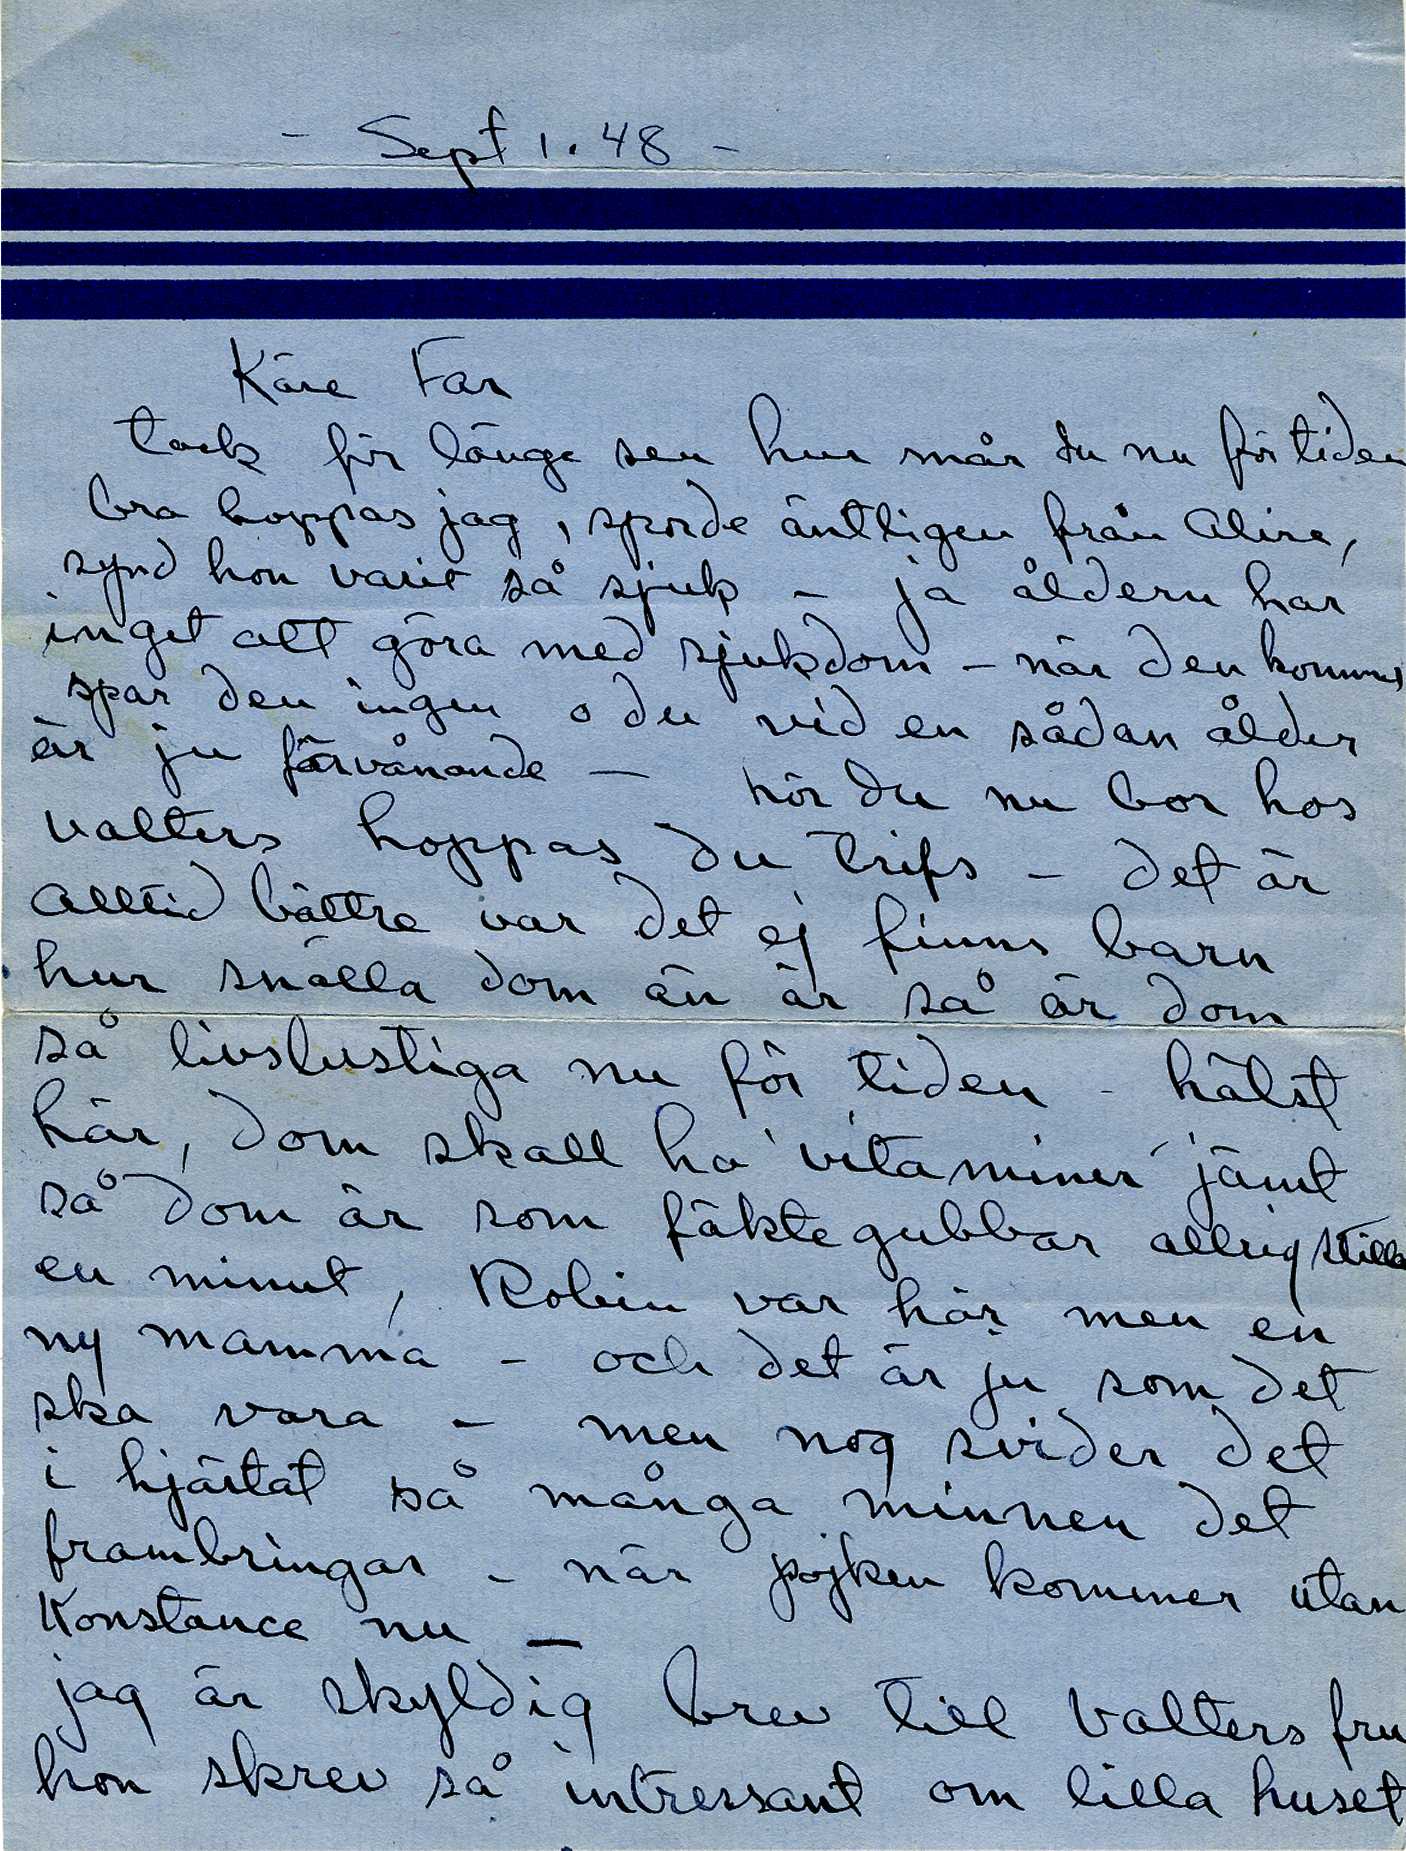 - Sept 1. 48 -
Käre Far
tack för länge sen hur mår du nu för tiden
bra hoppas jag, sporde äntligen från Alice,
synd hon varit så sjuk - ja åldern har
inget att göra med sjukdom - när den kommer
spar den ingen o du vid en sådan ålder
är ju förvånande - hör du nu bor hos
Valters hoppas du trifs - det är
alltid bättre var det ej finns barn
hur snälla dom än är så är dom
så livslustiga nu för tiden - hälst
här, dom skall ha 'vitaminer' jämt
så dom är som fäktegubbar allrig stilla
en minut, Robin var här men en
ny mamma - och det är ju som det
ska vara - men nog svider det
i hjärtat så många minnen det
frambringar - när pojken kommer utan
Konstance nu -
jag är skyldig brev till Valters fru
hon skrev så intressant om lilla huset